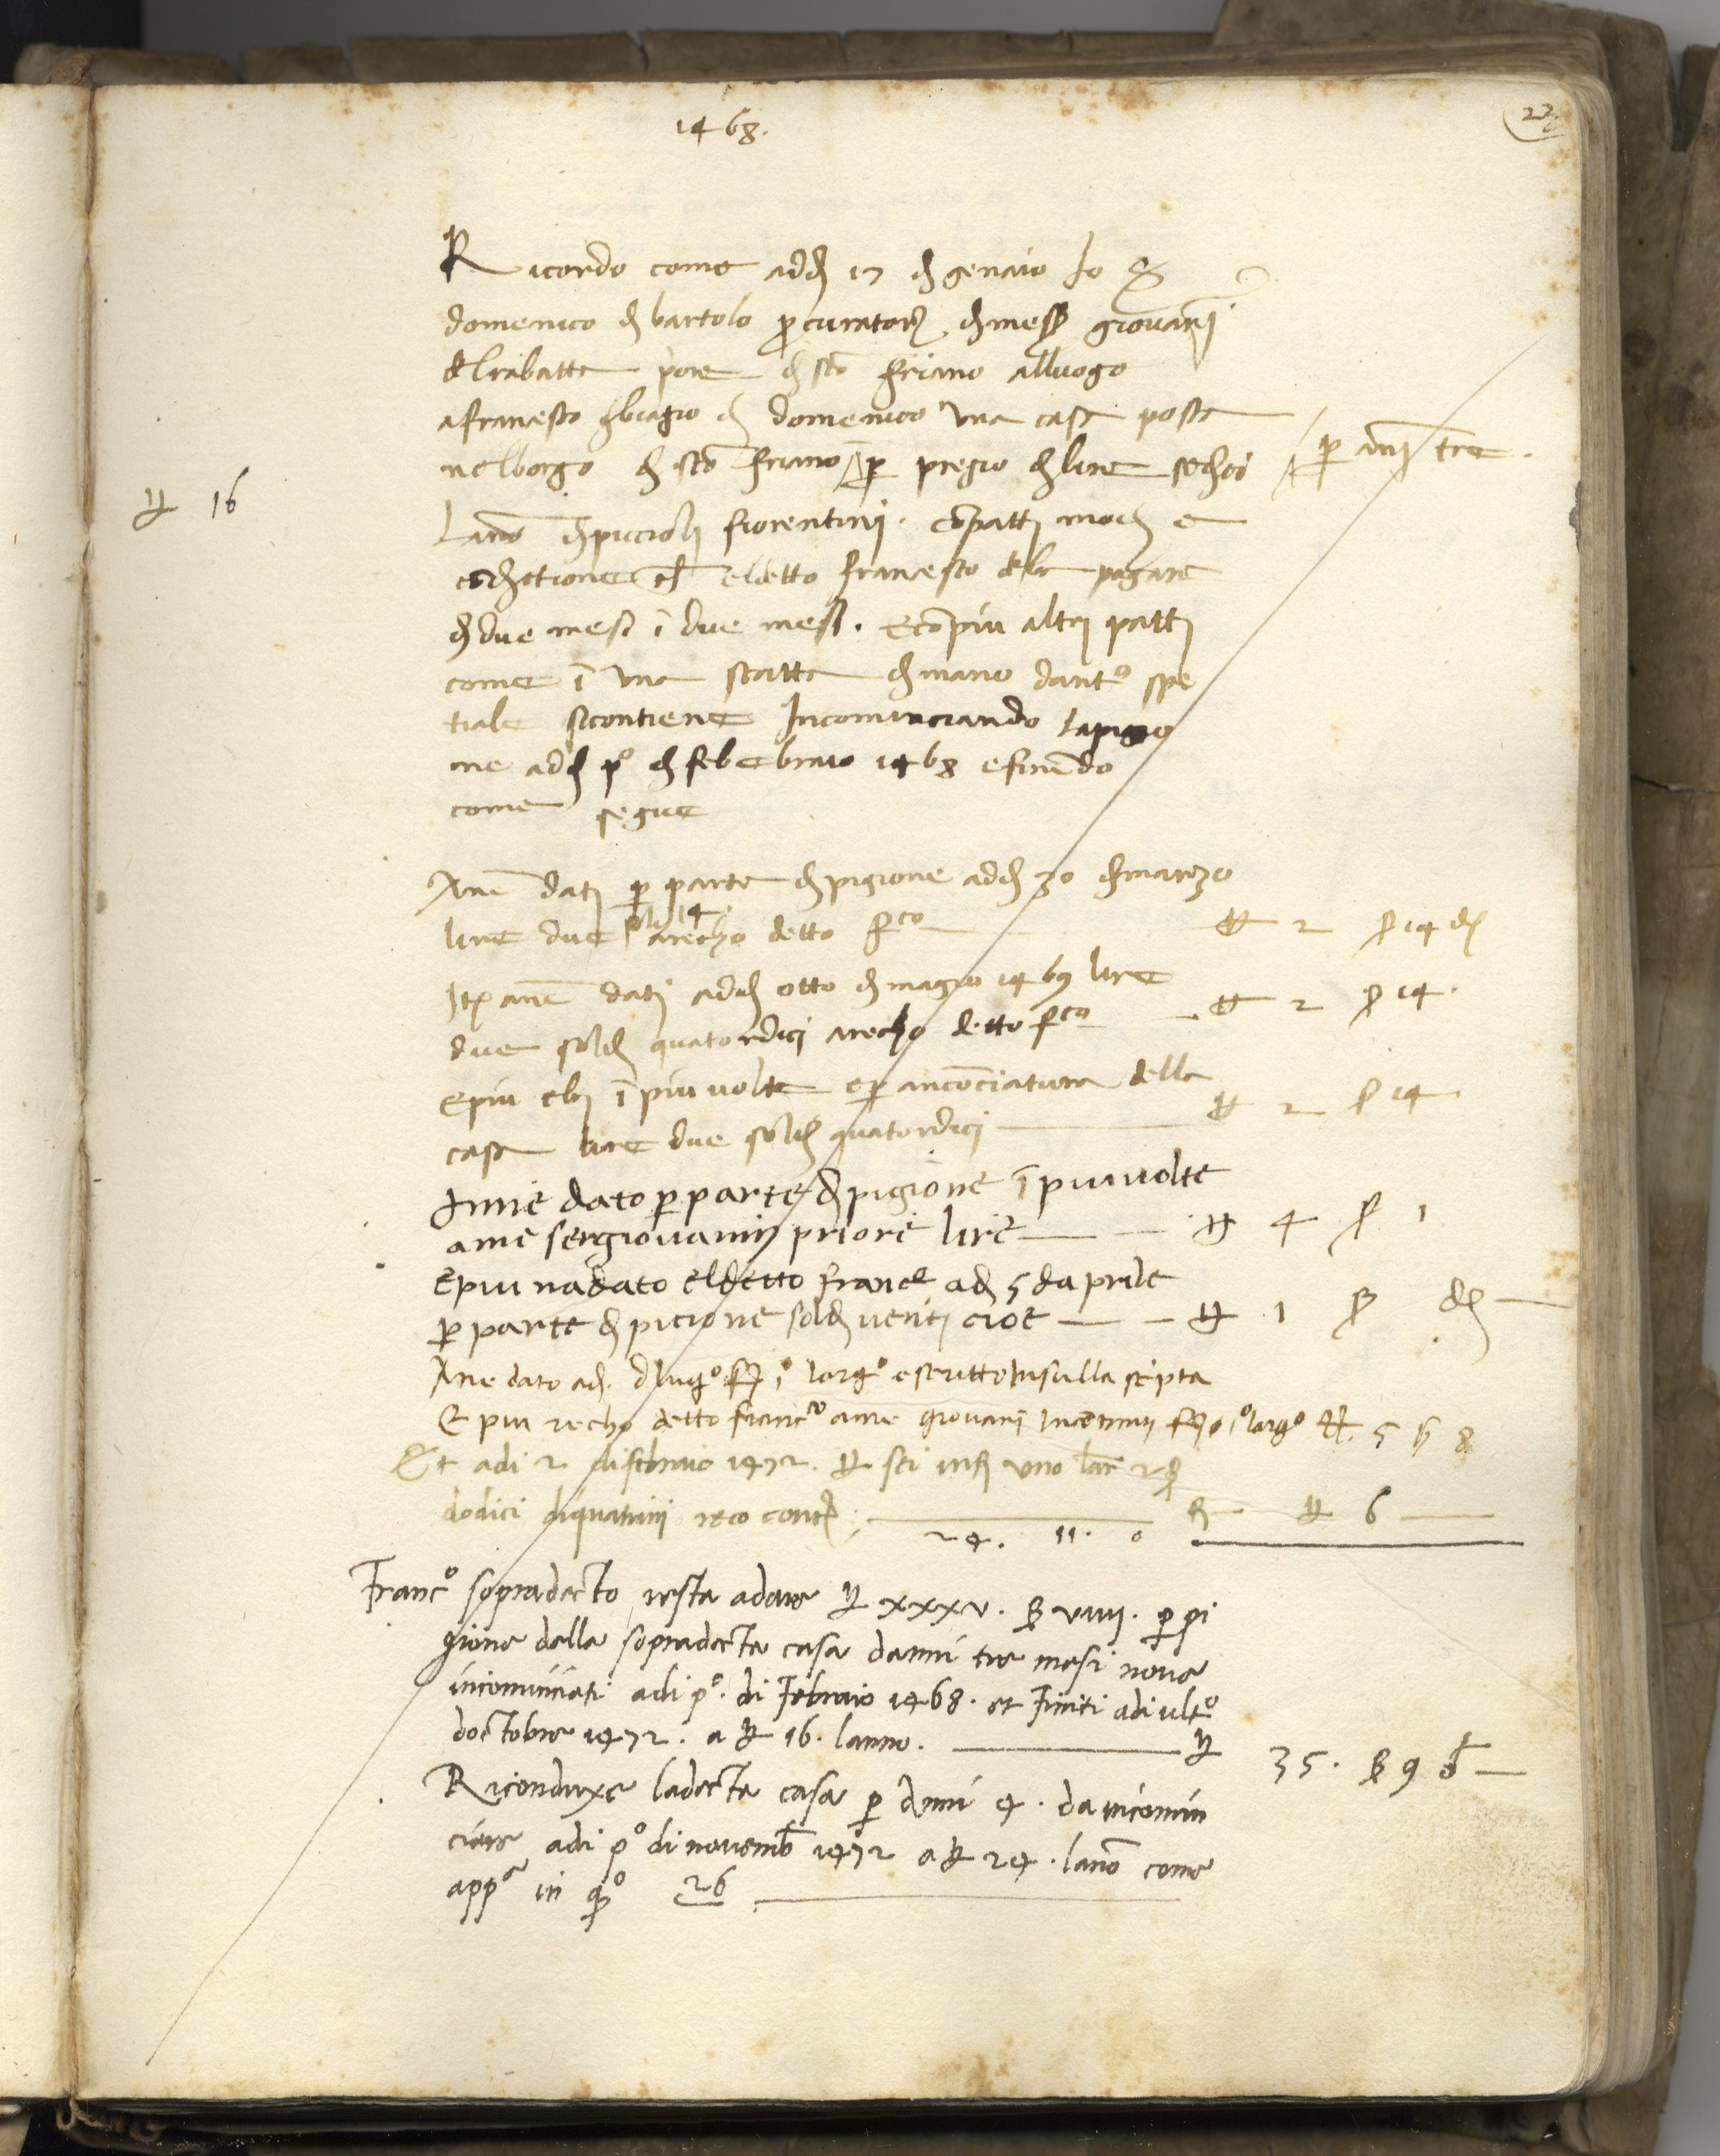 1468.
22
Ricordo come adi 17 di genaio Io S
domenico di bartolo procurator di mess giovanni
del rabatta pore di sco friano alluogo
a francesco di biagio di domenico una casa posta
nel borgo di sco friano p pregio di lire sedici
p anni tre.
₶ 16
lano di piccioli fiorentini. co patti modi e
chel detto francesco debe pagare
di due mesi i due mesi. E co piu altri patti
come i una scritta di mano dantº spe
tiale si contiene Incominciando la pigio
ne adi pº di febebraio 1468 e finendo
come segue
Ane dati p parte di pigione adi 30 di marzo
lire due s 14 arecho detto fco ₶ 2 s 14 d
Itē ane dati adi otto di magio 1469 lire
due soldi quatordici arecho detto fco ₶ 2 s 14.
E piu ebi i piu volte e p anconciatura della
casa lire due soldi quatordici ₶ 2 s 14
Anne dato p parte di pigione i piu volte
a me ser giovanni priore lire ₶ 4 s 1
E piu na dato el detto franco adi 5 daprile
p parte di picione soldi venti cioe ₶ 1 s d
Ane dato adi dlugº f iº largº e scritto insulla scipta
E piu recho detto francº a me giovani f iº largº ₶. 5 s 8
Et adi 2 di febraio 1472. ₶ sei uno
dodici di quatrini reco ₶ 6
24. 11. 0
Francº sopradecto resta a dare ₶ xxxv. s viiii. p pi
gione della sopradecta casa danni tre mesi nove
incominciati adi pº. di Febraio 1468. et Finiti adi ultº
doctobre 1472. a ₶ 16. lanno. ₶ 35. s 9 d
Riconduxe la decta casa p anni 4. da incomin
ciare adi pº di novemb 1472 a ₶ 24. lano come
appª in qº 26